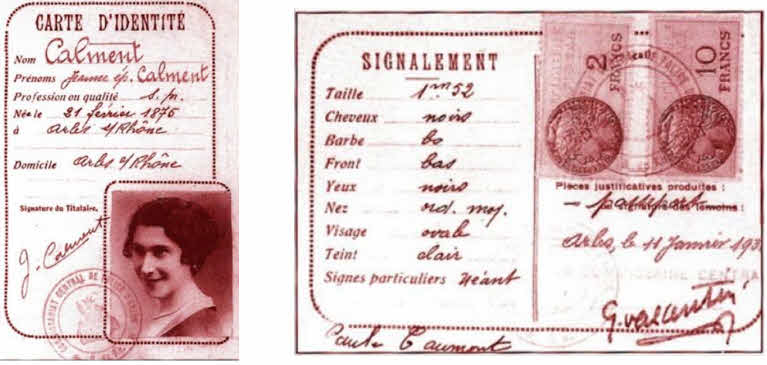 CARTE D'IDENTITÉ
Nom Calment
Prénoms Jeanne ep. Calment
Profession ou qualité s. p.
Née le 21 février 1875
à Arles s/Rhône
Domicile Arles s/Rhône
Signature du Titulaire.
J. Calment
COMMISSARIAT CENTRAL DE POLICE
SIGNALEMENT
Taille 1m52
Cheveux noirs
Barbe
Front bas
Yeux noirs
Nez ord. moy.
Visage ovale
Teint clair
Signes particuliers Néant
2 FRANCS
10 FRANCS
Pièces justificatives produites :
passeport
témoins:
Arles, le 11 Janvier 193
CENTRA